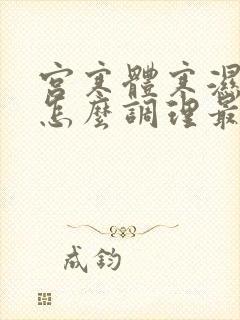 宮寒體寒濕
怎麼調理最
成鈞